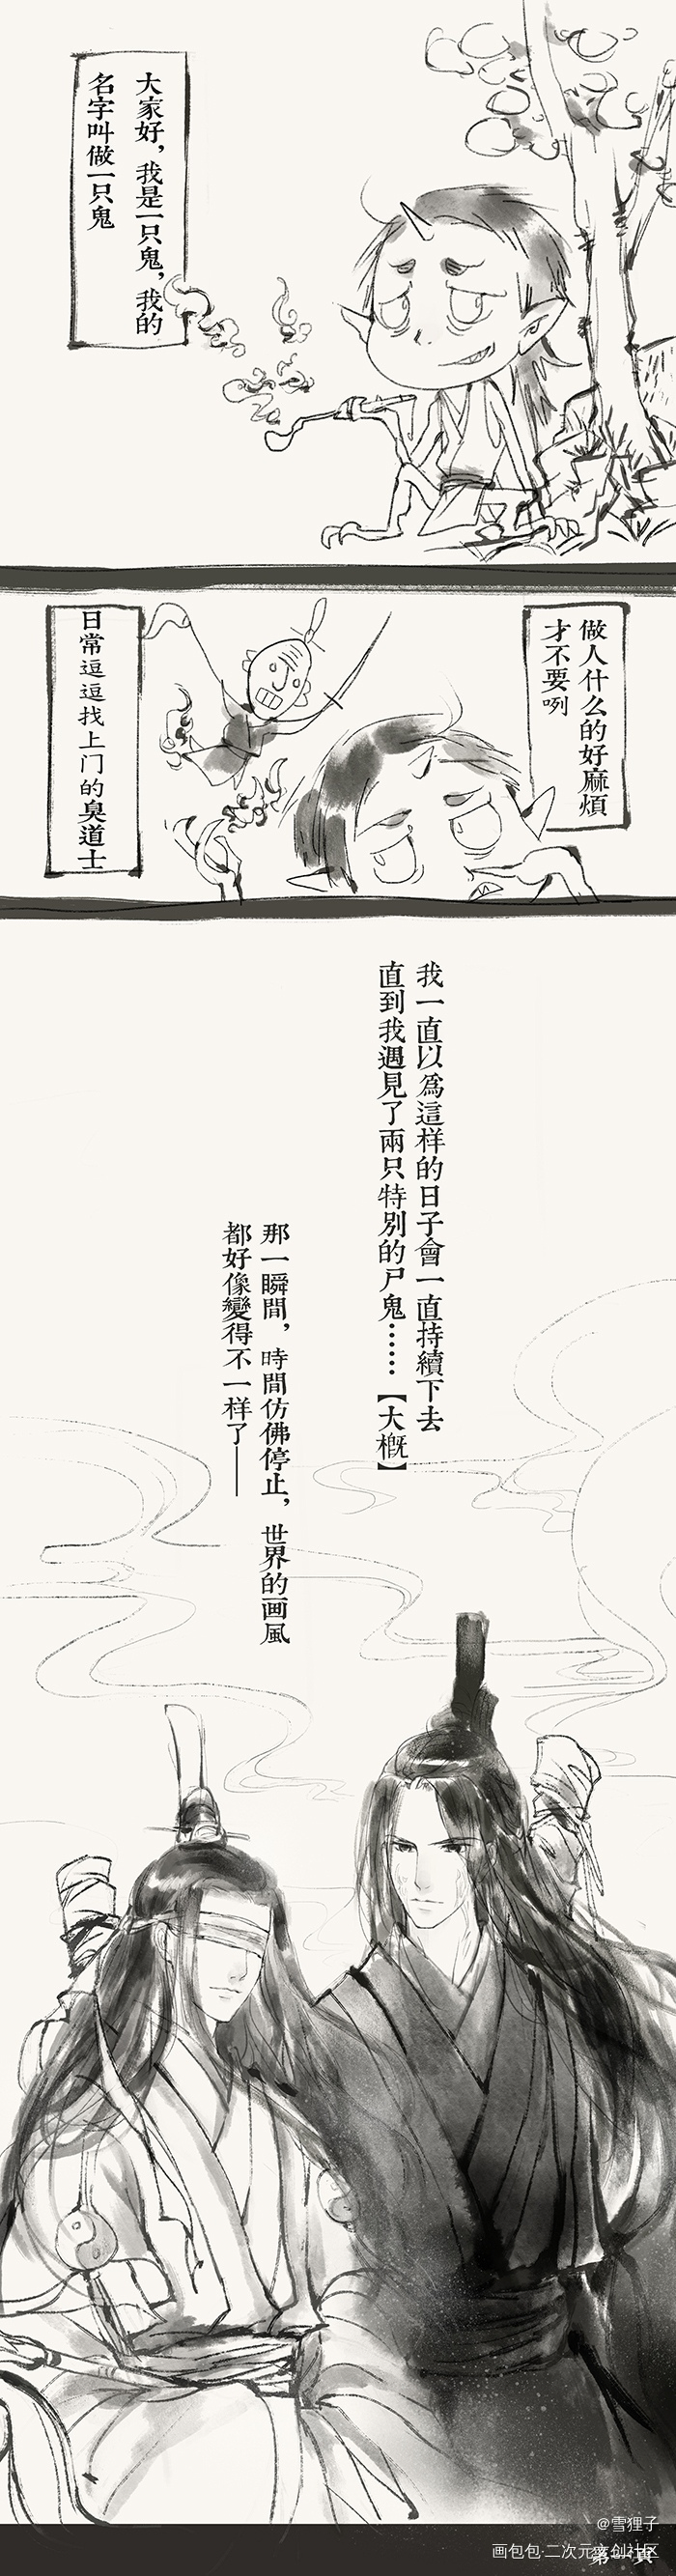 大家好，我是一只鬼，我的
名字叫做一只鬼
做人什么的好麻煩
才不要咧
日常逗逗找上门的臭道士
我一直以為這样的日子會一直持續下去
直到我遇見了兩只特別的尸鬼……【大概】
那一瞬間，時間仿佛停止，世界的画風
都好像變得不一样了——
@雪狸子
画包包·二次元文创社区